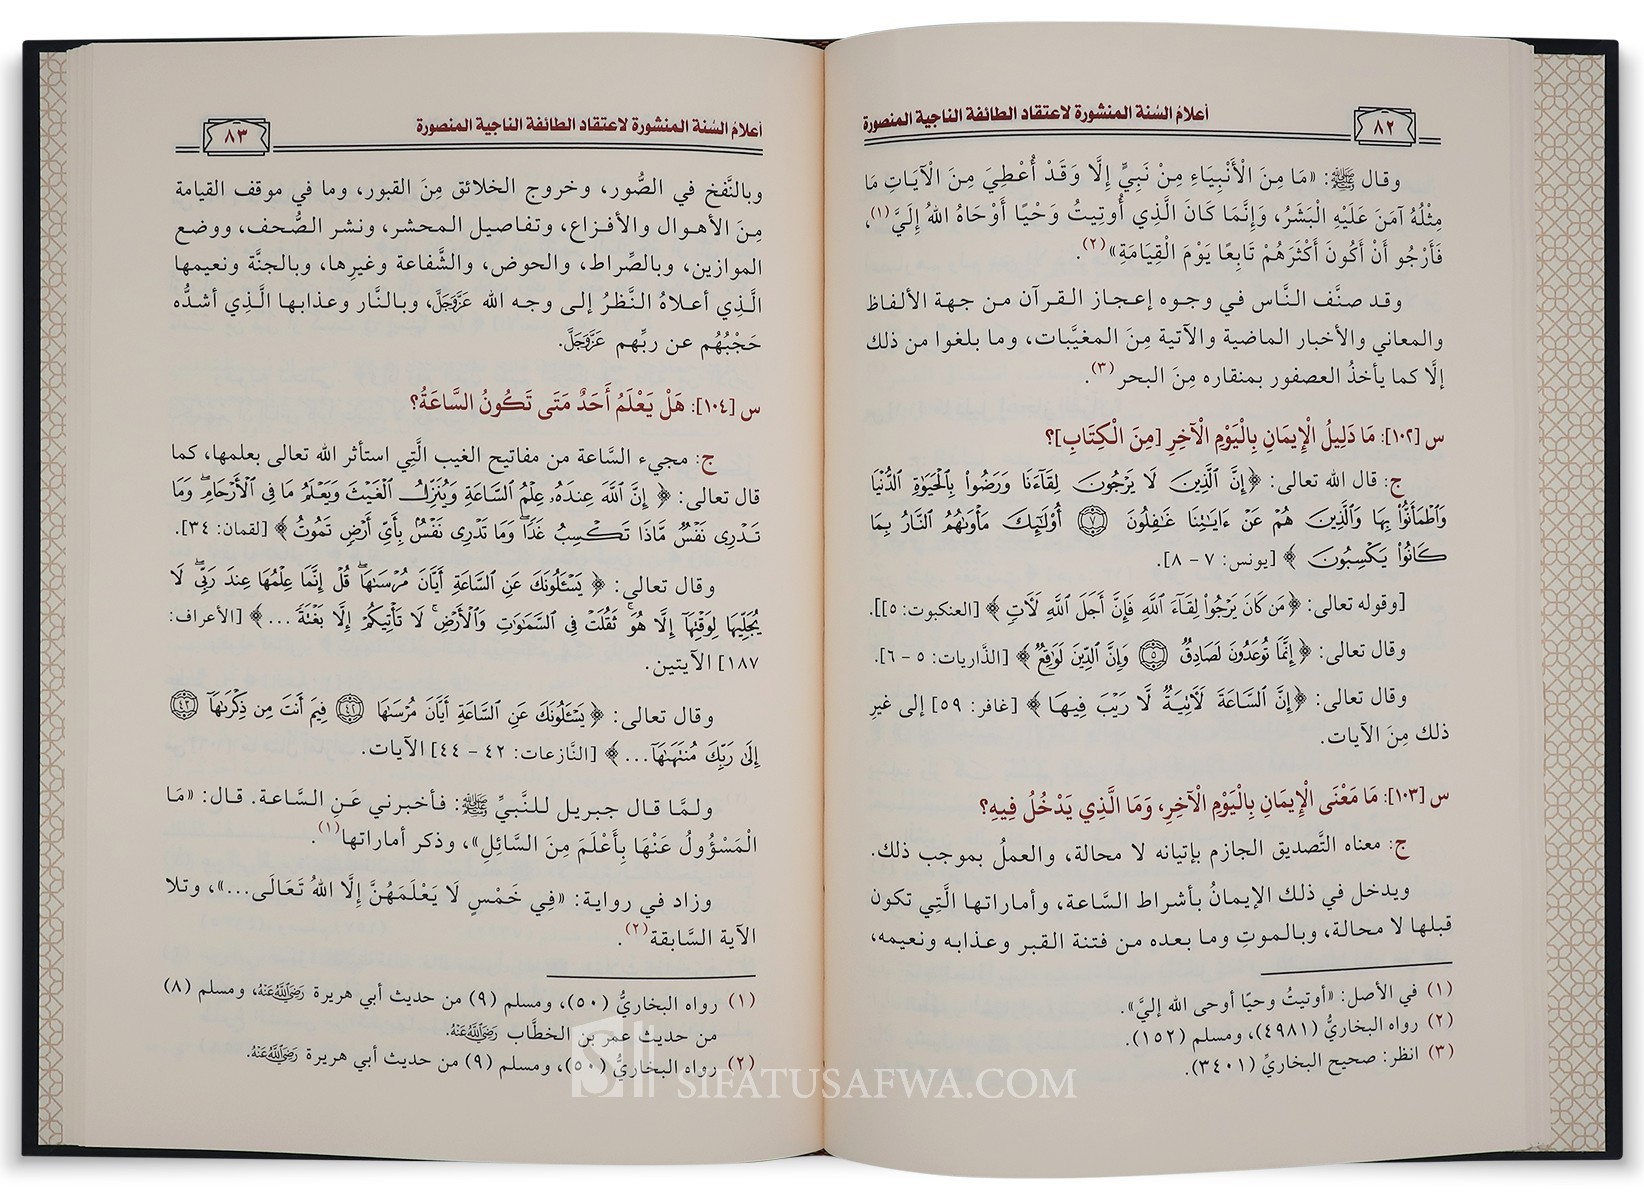 أعلامُ السُنة المنشورة لاعتقاد الطائفة الناجية المنصورة
٨٢
وقال ﷺ: «مَا مِنَ الْأَنْبِيَاءِ مِنْ نَبِيٍّ إِلَّا وَقَدْ أُعْطِيَ مِنَ الْآيَاتِ مَا
مِثْلُهُ آمَنَ عَلَيْهِ الْبَشَرُ، وَإِنَّمَا كَانَ الَّذِي أُوتِيتُ وَحْيًا أَوْحَاهُ اللهُ إِلَيَّ(١)،
فَأَرْجُو أَنْ أَكُونَ أَكْثَرَهُمْ تَابِعًا يَوْمَ الْقِيَامَةِ»(٢).
وقد صنَّف النَّاس في وجوه إعجاز القرآن من جهة الألفاظ
والمعاني والأخبار الماضية والآتية مِنَ المغيَّبات، وما بلغوا من ذلك
إلَّا كما يأخذُ العصفور بمنقاره مِنَ البحر(٣).
س [١٠٢]: مَا دَلِيلُ الْإِيمَانِ بِالْيَوْمِ الْآخِرِ [مِنَ الْكِتَابِ]؟
ج: قال الله تعالى: ﴿إِنَّ ٱلَّذِينَ لَا يَرۡجُونَ لِقَآءَنَا وَرَضُواْ بِٱلۡحَيَوٰةِ ٱلدُّنۡيَا
وَٱطۡمَأَنُّواْ بِهَا وَٱلَّذِينَ هُمۡ عَنۡ ءَايَٰتِنَا غَٰفِلُونَ ٧ أُوْلَٰٓئِكَ مَأۡوَىٰهُمُ ٱلنَّارُ بِمَا
كَانُواْ يَكۡسِبُونَ﴾ [يونس: ٧ - ٨].
[وقوله تعالى: ﴿مَن كَانَ يَرۡجُواْ لِقَآءَ ٱللَّهِ فَإِنَّ أَجَلَ ٱللَّهِ لَأٓتٖ﴾ [العنكبوت: ٥]].
وقال تعالى: ﴿إِنَّمَا تُوعَدُونَ لَصَادِقٞ ٥ وَإِنَّ ٱلدِّينَ لَوَٰقِعٞ﴾ [الذَّاريات: ٥ - ٦].
وقال تعالى: ﴿إِنَّ ٱلسَّاعَةَ لَأٓتِيَةٞ لَّا رَيۡبَ فِيهَا﴾ [غافر: ٥٩] إلى غيرِ
ذلك مِنَ الآيات.
س [١٠٣]: مَا مَعْنَى الْإِيمَانِ بِالْيَوْمِ الْآخِرِ، وَمَا الَّذِي يَدْخُلُ فِيهِ؟
ج: معناه التَّصديق الجازم بإتيانه لا محالة، والعملُ بموجب ذلك.
ويدخل في ذلك الإيمانُ بأشراط السَّاعة، وأماراتها الَّتِي تكون
قبلها لا محالة، وبالموتِ وما بعده من فتنة القبر وعذابه ونعيمه،
(١) في الأصل: «أوتيتُ وحيًا أوحى الله إليَّ».
(٢) رواه البخاريُّ (٤٩٨١)، ومسلم (١٥٢).
(٣) انظر: صحيح البخاريِّ (٣٤٠١).
أعلامُ السُنة المنشورة لاعتقاد الطائفة الناجية المنصورة
٨٣
وبالنَّفخ في الصُّور، وخروج الخلائق مِنَ القبور، وما في موقف القيامة
مِنَ الأهوال والأفزاع، وتفاصيل المحشر، ونشر الصُّحف، ووضع
الموازين، وبالصِّراط، والحوض، والشَّفاعة وغيرها، وبالجنَّة ونعيمها
الَّذِي أعلاهُ النَّظرُ إلى وجه الله عَزَّوَجَلَّ، وبالنَّار وعذابها الَّذِي أشدُّه
حَجْبُهُم عن ربِّهم عَزَّوَجَلَّ.
س [١٠٤]: هَلْ يَعْلَمُ أَحَدٌ مَتَى تَكُونُ السَّاعَةُ؟
ج: مجيء السَّاعة من مفاتيح الغيب الَّتِي استأثر الله تعالى بعلمها، كما
قال تعالى: ﴿إِنَّ ٱللَّهَ عِندَهُۥ عِلۡمُ ٱلسَّاعَةِ وَيُنَزِّلُ ٱلۡغَيۡثَ وَيَعۡلَمُ مَا فِي ٱلۡأَرۡحَامِۖ وَمَا
تَدۡرِي نَفۡسٞ مَّاذَا تَكۡسِبُ غَدٗاۖ وَمَا تَدۡرِي نَفۡسُۢ بِأَيِّ أَرۡضٖ تَمُوتُ﴾ [لقمان: ٣٤].
وقال تعالى: ﴿يَسۡـَٔلُونَكَ عَنِ ٱلسَّاعَةِ أَيَّانَ مُرۡسَىٰهَاۖ قُلۡ إِنَّمَا عِلۡمُهَا عِندَ رَبِّيۖ لَا
يُجَلِّيهَا لِوَقۡتِهَآ إِلَّا هُوَۚ ثَقُلَتۡ فِي ٱلسَّمَٰوَٰتِ وَٱلۡأَرۡضِۚ لَا تَأۡتِيكُمۡ إِلَّا بَغۡتَةٗ ...﴾ [الأعراف:
١٨٧] الآيتين.
وقال تعالى: ﴿يَسۡـَٔلُونَكَ عَنِ ٱلسَّاعَةِ أَيَّانَ مُرۡسَىٰهَا ٤٢ فِيمَ أَنتَ مِن ذِكۡرَىٰهَآ ٤٣
إِلَىٰ رَبِّكَ مُنتَهَىٰهَآ...﴾ [النَّازعات: ٤٢ - ٤٤] الآيات.
ولمَّا قال جبريل للنَّبيِّ ﷺ: فأخبرني عَنِ السَّاعة. قال: «مَا
الْمَسْؤُولُ عَنْهَا بِأَعْلَمَ مِنَ السَّائِلِ»، وذكر أماراتها(١).
وزاد في رواية: «فِي خَمْسٍ لَا يَعْلَمَهُنَّ إِلَّا اللهُ تَعَالَى...»، وتلا
الآية السَّابقة(٢).
(١) رواه البخاريُّ (٥٠)، ومسلم (٩) من حديث أبي هريرة رَضِيَاللَّهُعَنْهُ، ومسلم (٨)
من حديث عمر بن الخطَّاب رَضِيَاللَّهُعَنْهُ.
(٢) رواه البخاريُّ (٥٠)، ومسلم (٩) من حديث أبي هريرة رَضِيَاللَّهُعَنْهُ.
SIFATUSAFWA.COM